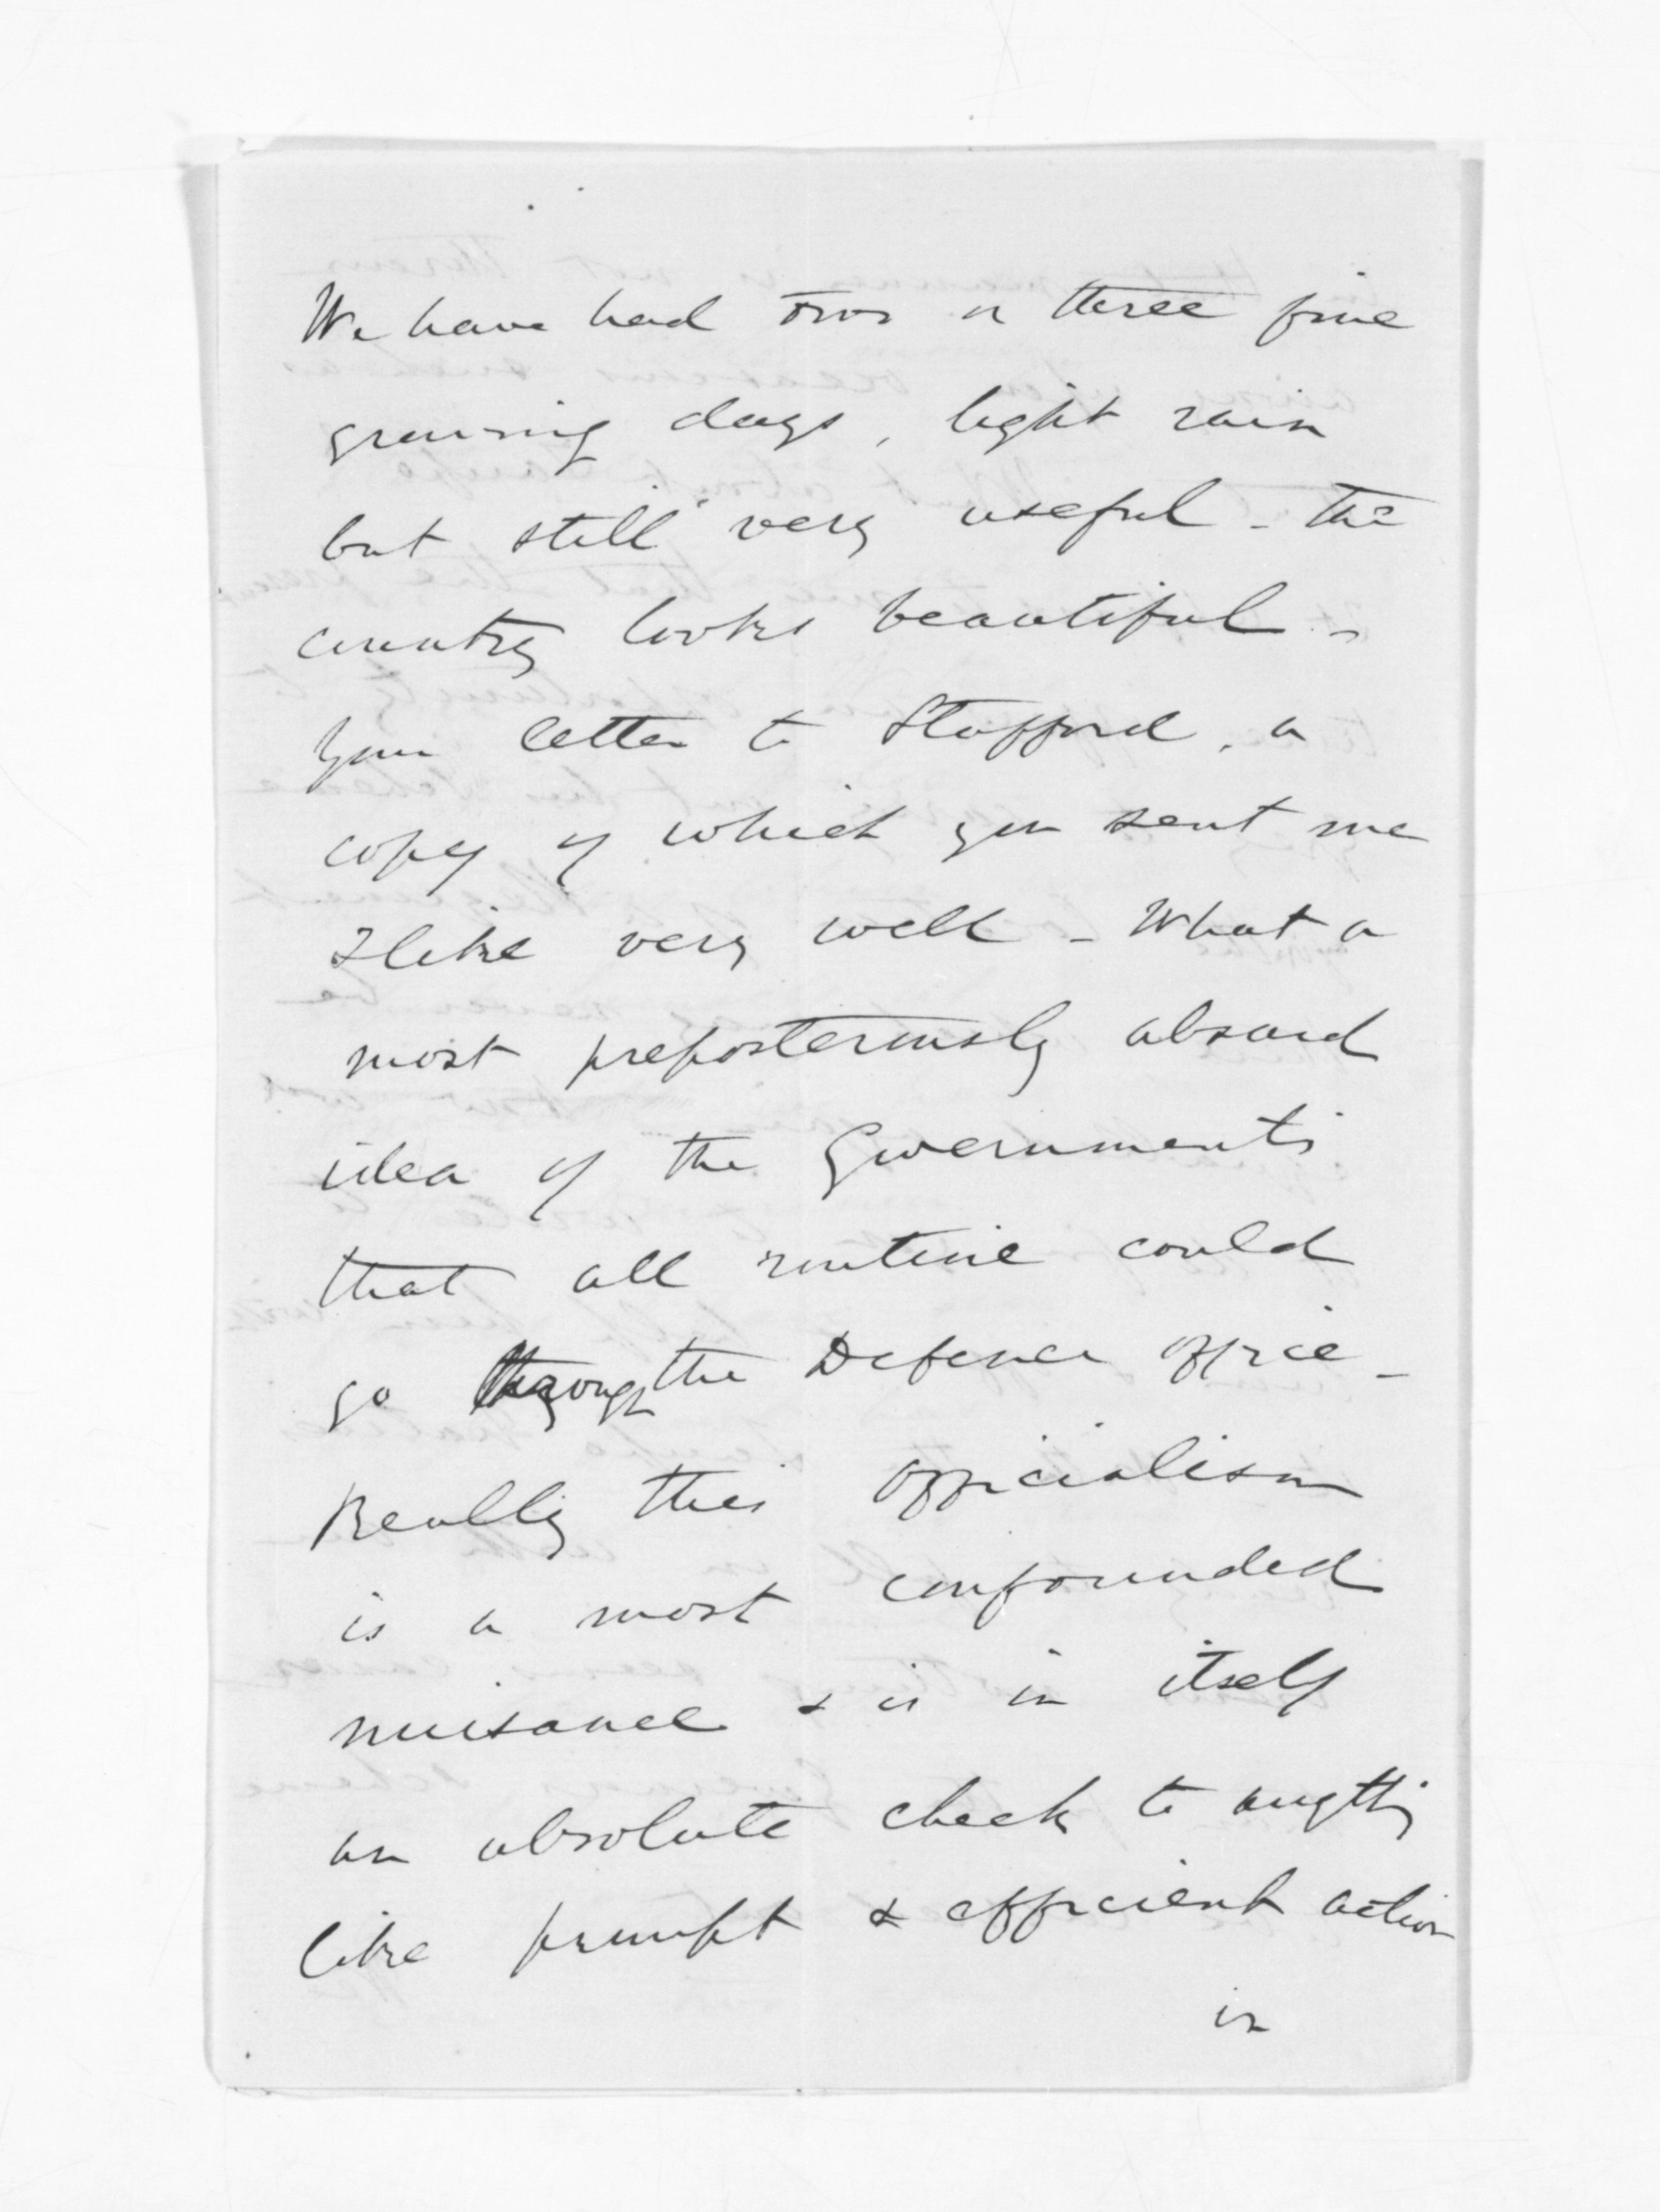 We have had two or three fine
growing days, light rain
but still very useful - the
country looks beautiful -
Your letter to Stafford, a
copy of which you sent me
I like very well - What a
most preposterously absurd
idea of the Governments
that all routine could
go through the Defence Office -
Really this officialism
is a most confounded
nuisance & is in itself
an absolute check to anythg
like prompt & efficient action
in